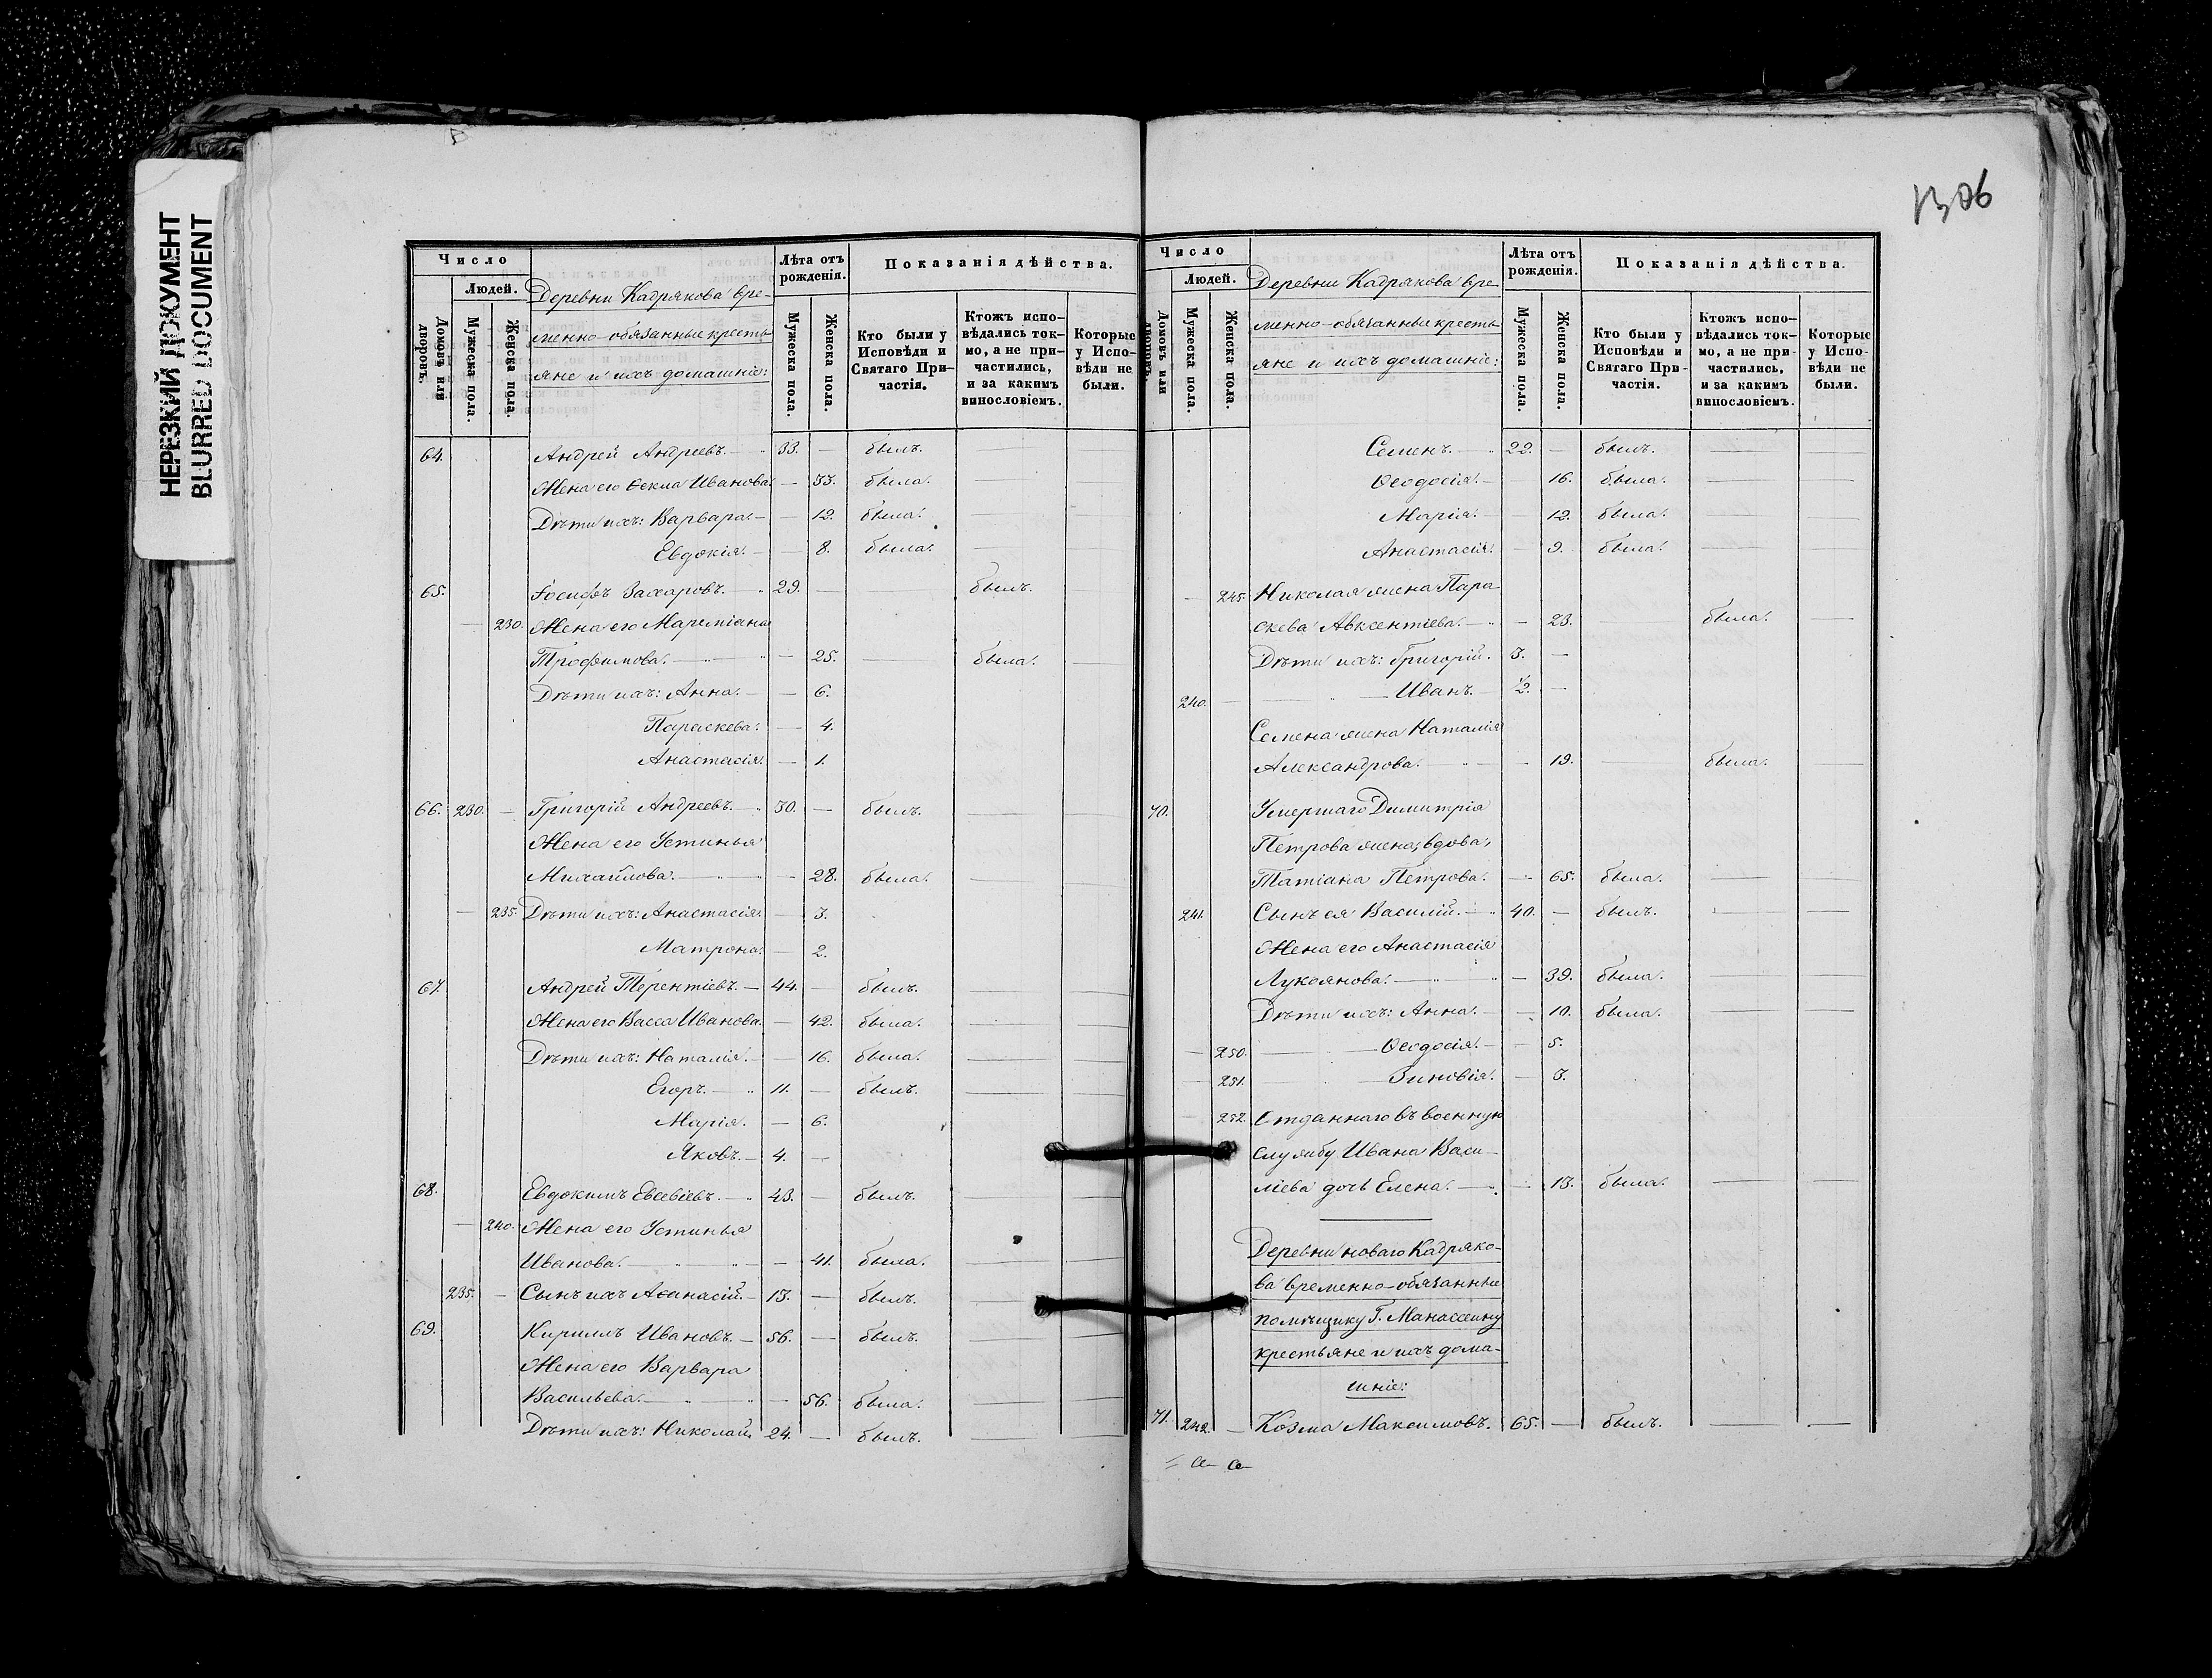 НЕРЕЗКИЙ ДОКУМЕНТ
BLURRED DOCUMENT
Число
Людей.
Домовъ или дворовъ.
Мужеска пола.
Женска пола.
Деревни Кадрякова вре-
менно-обязанные кресть-
яне и ихъ домашніе:
Лѣта отъ рожденія.
Мужеска пола.
Женска пола.
Показанія дѣйства.
Кто были у Исповѣди и Святаго При-
частія.
Ктожъ испо-
вѣдались ток-
мо, а не при-
частились,
и за какимъ
винословіемъ.
Которые
у Испо-
вѣди не
были.
64. Андрей Андреевъ. 33. — былъ.
Жена его Ѳекла Иванова — 33. была.
Дѣти ихъ: Варвара. — 12. была.
Евдокія. — 8. была.
65. Іосифъ Захаровъ. 29. — былъ.
230. Жена его Мареміана
Трофимова. — 25. была.
Дѣти ихъ: Анна. — 6.
Параскева. — 4.
Анастасія. — 1.
66. 230. — Григорій Андреевъ. 30. — былъ.
Жена его Устинья
Михайлова. — 28. была.
— 235. Дѣти ихъ: Анастасія. — 3.
Матрона. — 2.
67. Андрей Терентіевъ. — 44. — былъ.
Жена его Васса Иванова. — 42. была.
Дѣти ихъ: Наталія. — 16. была.
Егоръ. 11. — былъ.
Марія. — 6.
Яковъ. — 4. —
68. Евдокимъ Евсевіевъ. 43. — былъ.
— 240. Жена его Устинья
Иванова. — 41. была.
235. — Сынъ ихъ Аѳанасій. 13. — былъ.
69. Кириллъ Ивановъ. — 56. — былъ.
Жена его Варвара
Васильева. — 56. была.
Дѣти ихъ: Николай. 24. — былъ.
1306
Число
Людей.
Домовъ или дворовъ.
Мужеска пола.
Женска пола.
Деревни Кадрякова вре-
менно-обязанные кресть-
яне и ихъ домашніе:
Лѣта отъ рожденія.
Мужеска пола.
Женска пола.
Показанія дѣйства.
Кто были у
Исповѣди и
Святаго При-
частія.
Ктожъ испо-
вѣдались ток-
мо, а не при-
частились,
и за какимъ
винословіемъ.
Которые
у Испо-
вѣди не
были.
Семенъ. 22. — былъ.
Ѳеодосія. — 16. была.
Марія. — 12. была.
Анастасія. — 9. была.
— 245. Николая жена Пара-
скева Авксентіева. — 23. была.
Дѣти ихъ: Григорій. 3. —
240. — Иванъ. ½. —
Семена жена Наталія
Александрова. — 19. была.
70. Умершаго Димитрія
Петрова жена, вдова,
Татіана Петрова. — 65. была.
241. Сынъ ея Василій. 40. — былъ.
Жена его Анастасія
Лукоянова. — 39. была.
Дѣти ихъ: Анна. — 10. была.
— 250. Ѳеодосія. — 5.
— 251. Зиновія. — 3.
— 252. Отданнаго въ военную
службу Ивана Васи-
ліева дочь Елена. — 13. была.
Деревни новаго Кадряко-
ва временно-обязанные
помѣщику Г. Манассеину
крестьяне и ихъ дома-
шніе:
71. 242. — Козма Максимовъ. 65. — былъ.